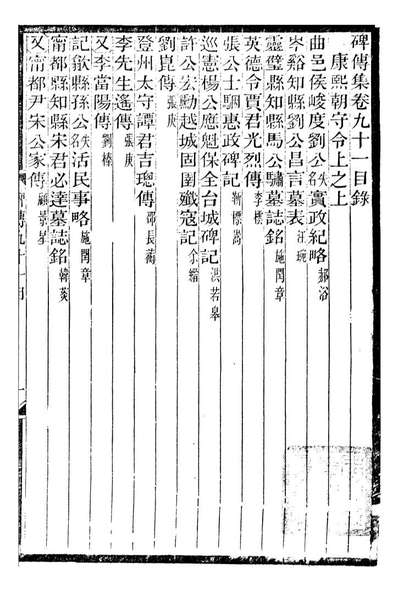 碑傳集卷九十一目錄
康熙朝守令上之上
曲邑侯峻度劉公失名實政紀略 郝浴
岑谿知縣劉公昌言墓表 汪琬
靈璧縣知縣馬公驌墓誌銘 施閏章
英德令賈君光烈傳 李標
張公士駰惠政碑記 靳標嵩
巡憲楊公應魁保全台城碑記 洪若皋
許公宏勳越城固圉殲寇記 余縉
劉崑傳 張庚
登州太守譚君吉璁傳 邵長蘅
李先生遙傳 張庚
又李當陽傳 劉榛
記歙縣孫公失名活民事略 施閏章
甯都縣知縣宋君必達墓誌銘 韓菼
又甯都尹宋公家傳 顧景星
碑傳九十一目